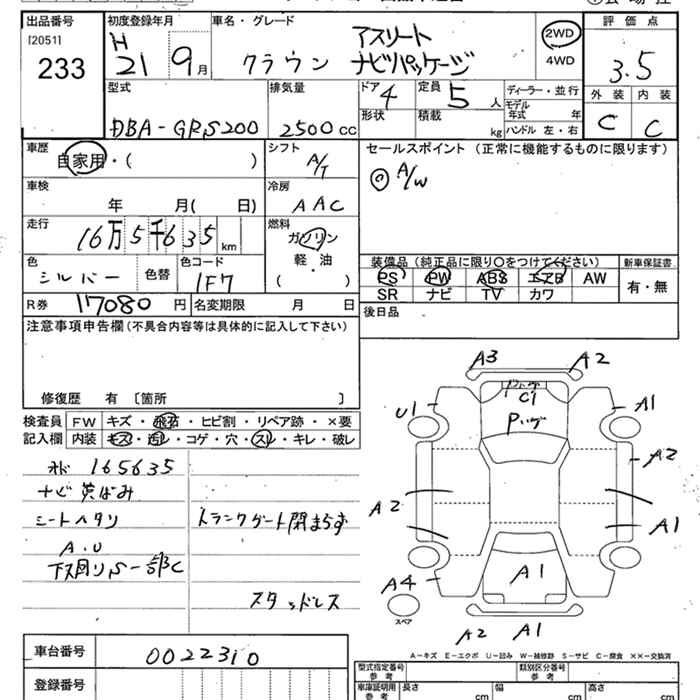 出品番号
[2051]
233
初度登録年月
H
21 9月
車名・グレード
クラウン
アスリート
ナビパッケージ
2WD
4WD
評価点
3.5
外装 内装
C C
型式
DBA-GRS200
排気量
2500cc
ドア
4
形状
定員
5人
積載
kg
ディーラー・並行
モデル
年式 年
ハンドル 左・右
車歴
自家用・( )
シフト
A/T
車検
年 月( 日)
冷房
AAC
走行
16万5千635km
燃料
ガソリン
軽・油
( )
色
シルバー
色替
色コード
1F7
R券
17080円
名変期限 月 日
セールスポイント (正常に機能するものに限ります)
◎ A/W
装備品(純正品に限り〇をつけてください)
PS PW ABS エアB AW
SR ナビ TV カワ
新車保証書
有・無
後日品
注意事項申告欄(不具合内容等は具体的に記入して下さい)
修復歴 有 〔箇所 〕
検査員
記入欄
FW キズ・飛石・ヒビ割・リペア跡・×要
内装 キズ・汚レ・コゲ・穴・スレ・キレ・破レ
165635
ナビ黄ばみ
シートヘタリ
A.U
下回りS一部C
トランクゲート閉まらず
スタッドレス
A3 A2
C1
U1 A1
A2
A2
A1
A4 A1
スペア
A2 A1
A－キズ E－エクボ U－凹み W－補修跡 S－サビ C－腐食 ××－交換済
車台番号
0022310
登録番号
型式指定番号
参考
類別区分番号
参考
車庫証明用
参考
長さ cm
幅 cm
高さ cm